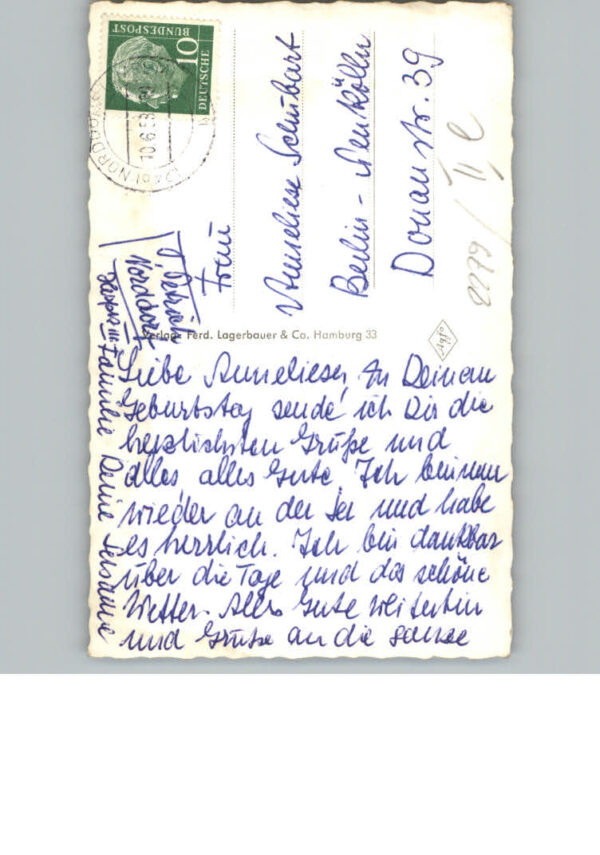 DEUTSCHE
BUNDESPOST
10
NORDDORF
10.6.58
Frau
Anneliese Schubart
Berlin-Neukölln
Donaustr. 39
2279 / II e
Norddorf
Verlag: Ferd. Lagerbauer & Co. Hamburg 33
Agfa
Liebe Anneliese, Zu Deinem
Geburtstag sende ich Dir die
herzlichsten Grüße und
alles alles Gute. Ich bin nun
wieder an der See und habe
es herrlich. Ich bin dankbar
über die Tage und das schöne
Wetter. Alles Gute weiterhin
und Grüße an die ganze
Familie Deine